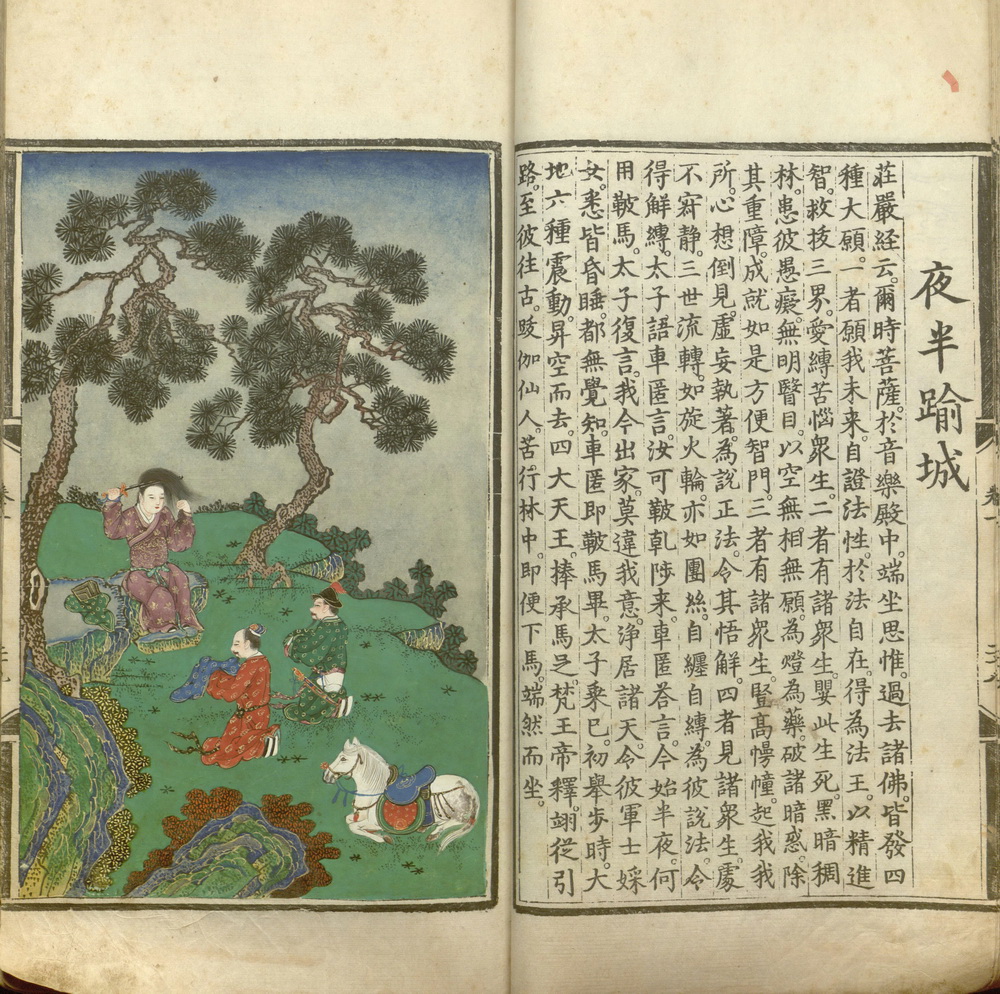 夜半踰城
莊嚴経云。爾時菩薩。於音樂殿中。端坐思惟。過去諸佛。皆發四
種大願。一者願我未來。自證法性。於法自在。得為法王。以精進
智。救拔三界。愛縛苦惱衆生。二者有諸衆生。嬰此生死。黑暗稠
林。患彼愚癡。無明瞖目。以空無相無願。為燈為藥。破諸暗惑。除
其重障。成就如是方便智門。三者有諸衆生。豎髙慢幢。起我我
所。心想倒見。虛妄執著。為說正法。令其悟解。四者見諸衆生。處
不寂静。三世流轉。如旋火輪。亦如團絲。自纏自縛。為彼說法。令
得解縛。太子語車匿言。汝可鞁乹陟来。車匿荅言。今始半夜。何
用鞁馬。太子復言。我今出家。莫違我意。淨居諸天。令彼軍士婇
女。悉皆昏睡。都無覺知。車匿即鞁馬畢。太子乘已。初舉步時。大
地六種震動。昇空而去。四大天王。捧承馬足。梵王帝釋。翊從引
路。至彼往古。䟦伽仙人。苦行林中。即便下馬。端然而坐。
卷一